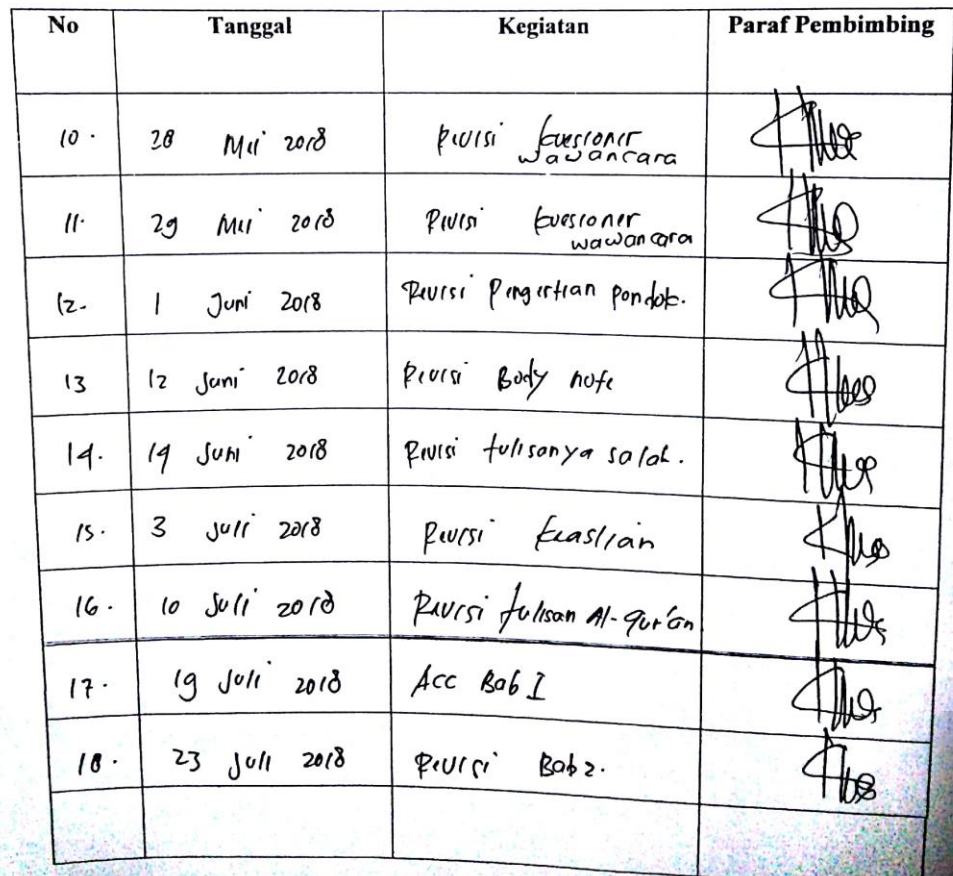 No Tanggal Kegiatan Paraf Pembimbing
10. 28 Mei 2018 Revisi kuesioner
wawancara
11. 29 Mei 2018 Revisi kuesioner
wawancara
12. 1 Juni 2018 Revisi Pengertian pondok.
13 12 Juni 2018 Revisi Body note
14. 14 Juni 2018 Revisi tulisanya salah.
15. 3 Juli 2018 Revisi keaslian
16. 10 Juli 2018 Revisi tulisan Al-Qur'an
17. 19 Juli 2018 Acc Bab I
18. 23 Juli 2018 Revisi Bab 2.